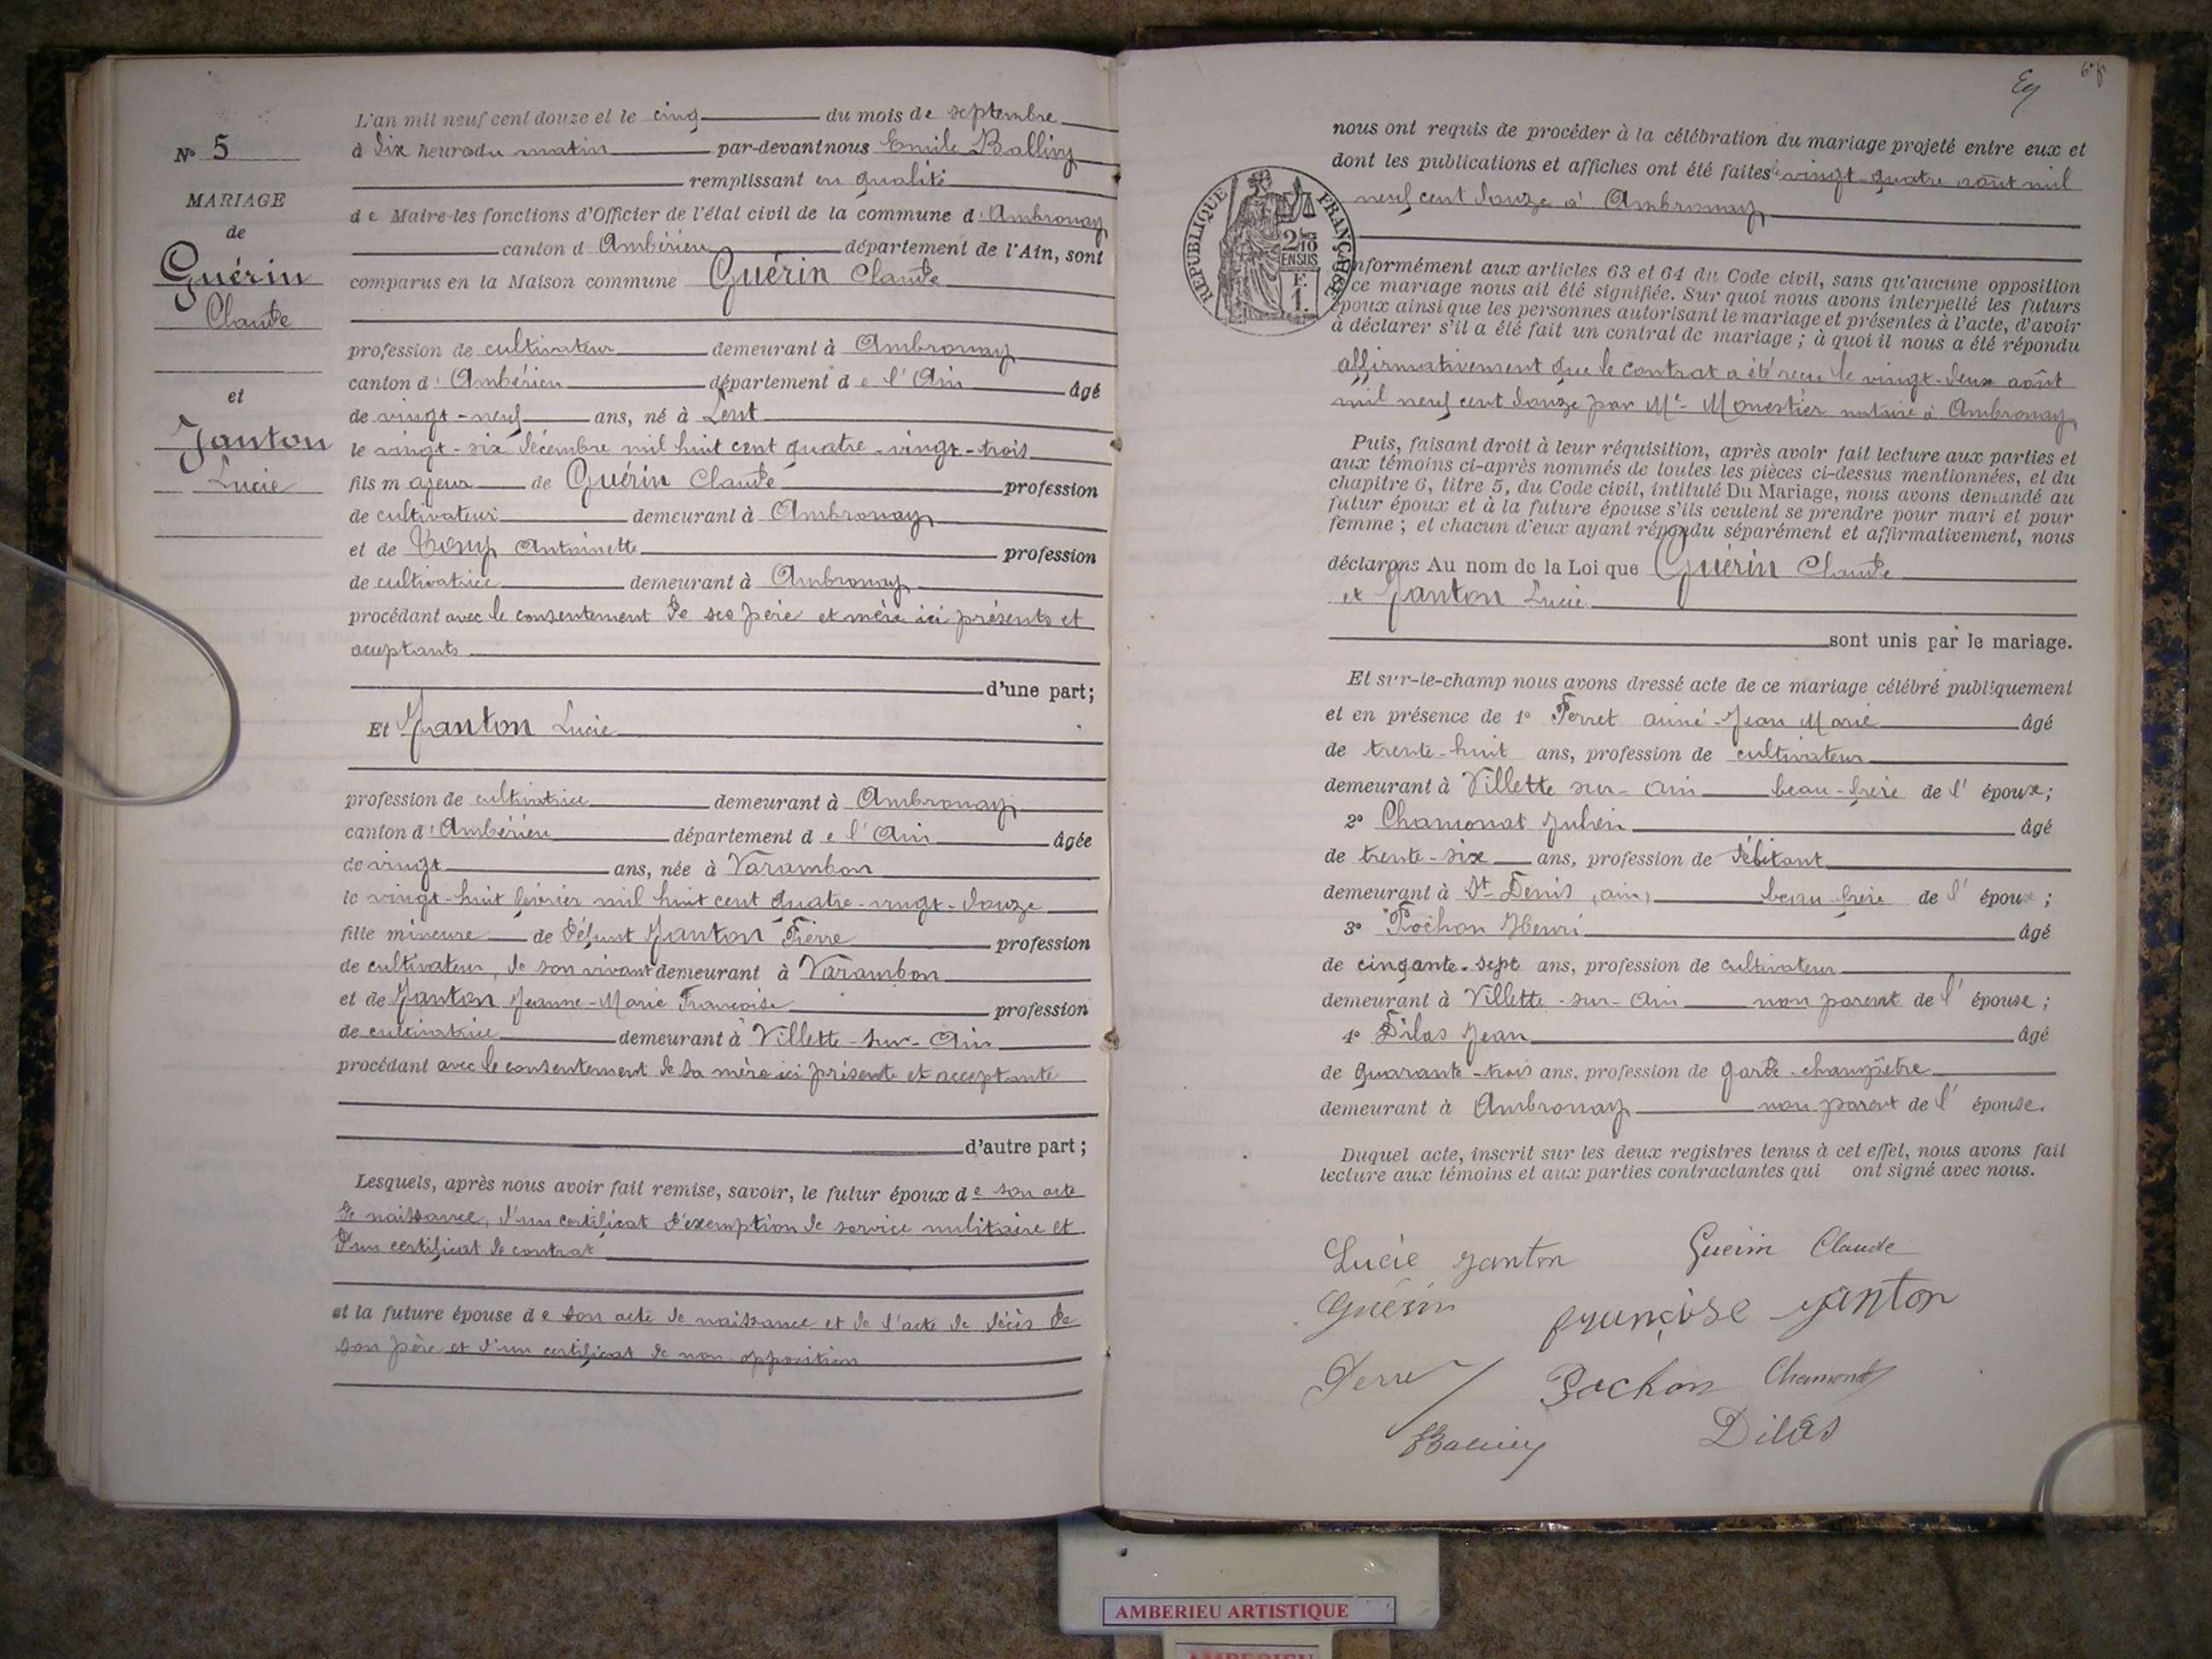 N° 5
MARIAGE
de
Guérin
Claude
et
Janton
Lucie
L'an mil neuf cent douze et le cinq du mois de septembre
à dix heures du matin par-devant nous Emile Ballivy
remplissant en qualité
de Maire les fonctions d'Officier de l'état civil de la commune d'Ambronay
canton d'Ambérieu département de l'Ain, sont
comparus en la Maison commune Guérin Claude
profession de cultivateur demeurant à Ambronay
canton d'Ambérieu département de l'Ain âgé
de vingt-neuf ans, né à Lent
le vingt-six décembre mil huit cent quatre-vingt-trois
fils majeur de Guérin Claude profession
de cultivateur demeurant à Ambronay
et de Antoinette profession
de cultivatrice demeurant à Ambronay
procédant avec le consentement de ses père et mère ici présents et
aceptants
d'une part;
Et Janton Lucie
profession de cultivatrice demeurant à Ambronay
canton d'Ambérieu département de l'Ain âgée
de vingt ans, née à Varambon
le vingt-huit février mil huit cent quatre-vingt-douze
fille mineure de défunt Janton Pierre profession
de cultivateur, de son vivant demeurant à Varambon
et de Janton Jeanne-Marie Françoise profession
de cultivatrice demeurant à Villette-sur-Ain
procédant avec le consentement de sa mère ici présente et acceptante
d'autre part;
Lesquels, après nous avoir fait remise, savoir, le futur époux de son acte
de naissance, d'un certificat d'exemption de service militaire et
d'un certificat de contrat
et la future épouse de son acte de naissance et de l'acte de décès de
son père et d'un certificat de non-opposition
nous ont requis de procéder à la célébration du mariage projeté entre eux et
dont les publications et affiches ont été faites le vingt-quatre août mil
neuf cent douze à Ambronay
REPUBLIQUE FRANÇAISE
2/10
EN SUS
F.
1.
nformément aux articles 63 et 64 du Code civil, sans qu'aucune opposition
ce mariage nous ait été signifiée. Sur quoi nous avons interpellé les futurs
époux ainsi que les personnes autorisant le mariage et présentes à l'acte, d'avoir
à déclarer s'il a été fait un contrat de mariage; à quoi il nous a été répondu
affirmativement que le contrat a été reçu le vingt-deux août
mil neuf cent douze par Me Monestier notaire à Ambronay
Puis, faisant droit à leur réquisition, après avoir fait lecture aux parties et
aux témoins ci-après nommés de toutes les pièces ci-dessus mentionnées, et du
chapitre 6, titre 5, du Code civil, intitulé Du Mariage, nous avons demandé au
futur époux et à la future épouse s'ils veulent se prendre pour mari et pour
femme; et chacun d'eux ayant répondu séparément et affirmativement, nous
déclarons Au nom de la Loi que Guérin Claude
et Janton Lucie
sont unis par le mariage.
Et sur-le-champ nous avons dressé acte de ce mariage célébré publiquement
et en présence de 1° Perret aimé-Jean Marie âgé
de trente-huit ans, profession de cultivateur
demeurant à Villette sur-Ain beau-frère de l'époux;
2° Chamonat Julien âgé
de trente-six ans, profession de débitant
demeurant à St-Denis (ain) beau frère de l'époux;
3° Pochon Henri âgé
de cinqante-sept ans, profession de cultivateur
demeurant à Villette-sur-Ain non parent de l'épouse;
4° Dilas Jean âgé
de quarante-trois ans, profession de garde-champêtre
demeurant à Ambronay non parent de l'épouse.
Duquel acte, inscrit sur les deux registres tenus à cet effet, nous avons fait
lecture aux témoins et aux parties contractantes qui ont signé avec nous.
Lucie Janton Guerin Claude
Guérin françoise Janton
Perret Pochon Chamonat
Ballivy Dilas
AMBERIEU ARTISTIQUE
AMBERIEU